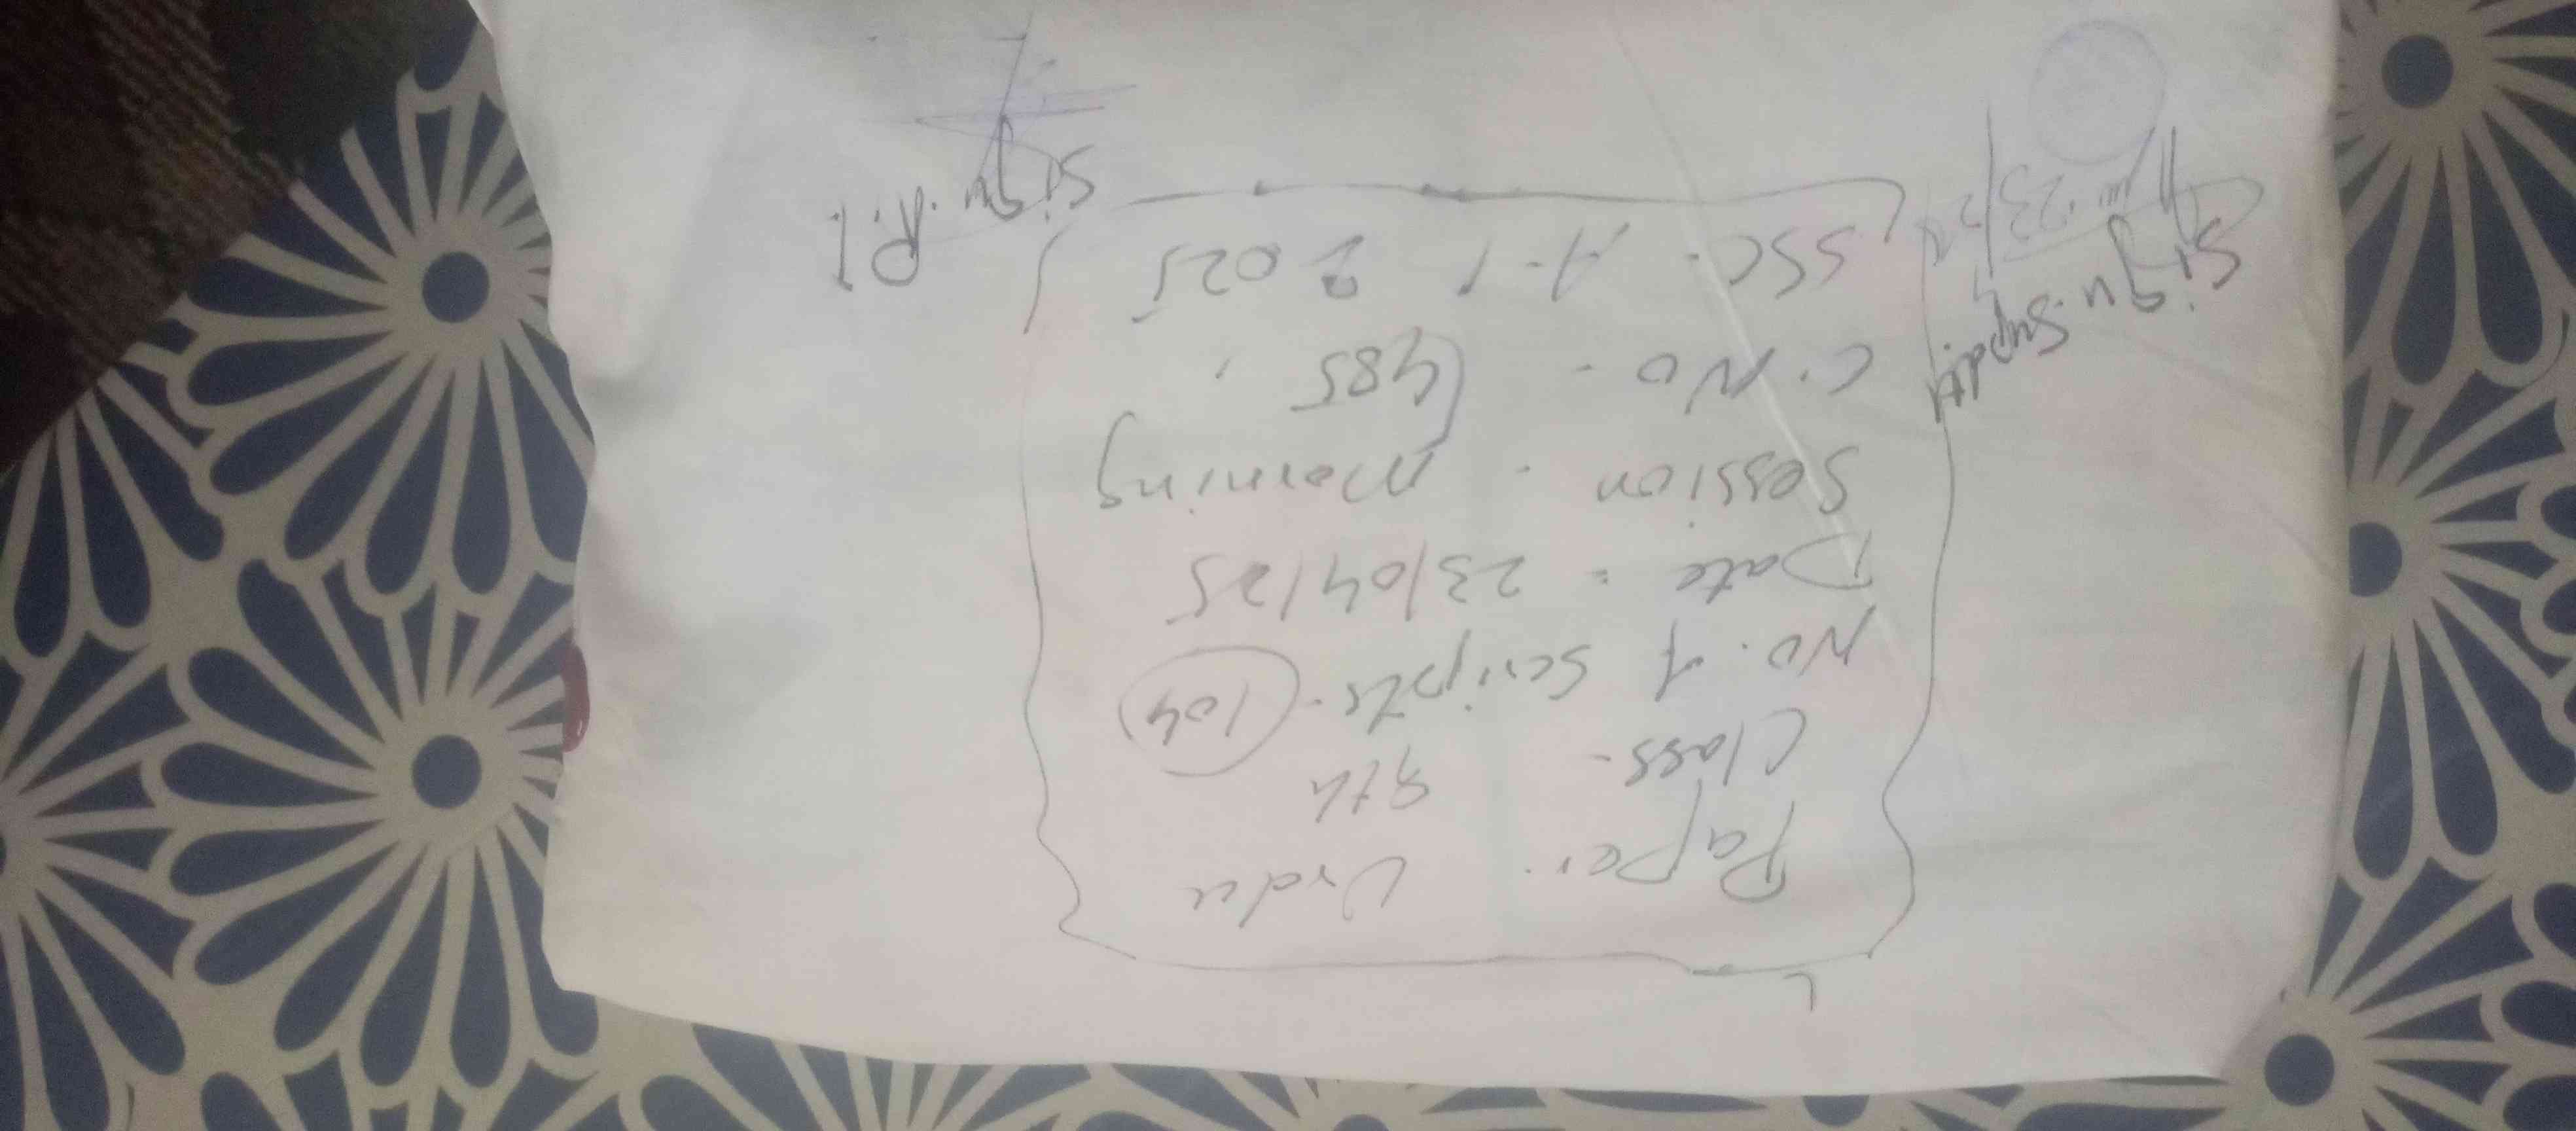 SSC - A-I 2025
C. No - 485
Session - Morning
Date = 23/04/25
No. of scripts - 104
Class - 9th
Paper. Urdu
Sign. Supdtt
Sign. R.I